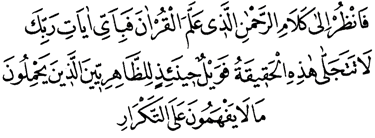 فَانْظُرْ اِلٰى كَلَامِ الرَّحْمٰنِ الَّذٖى عَلَّمَ الْقُرْاٰنَ فَبِاَىِّ اٰيَاتِ رَبِّكَ
لَا تَتَجَلّٰى هٰذِهِ الْحَقٖيقَةُ فَوَيْلٌ حٖينَئِذٍ لِلظَّاهِرِيّٖينَ الَّذٖينَ يَحْمِلُونَ
مَا لَا يَفْهَمُونَ عَلَى التَّكْرَارِ